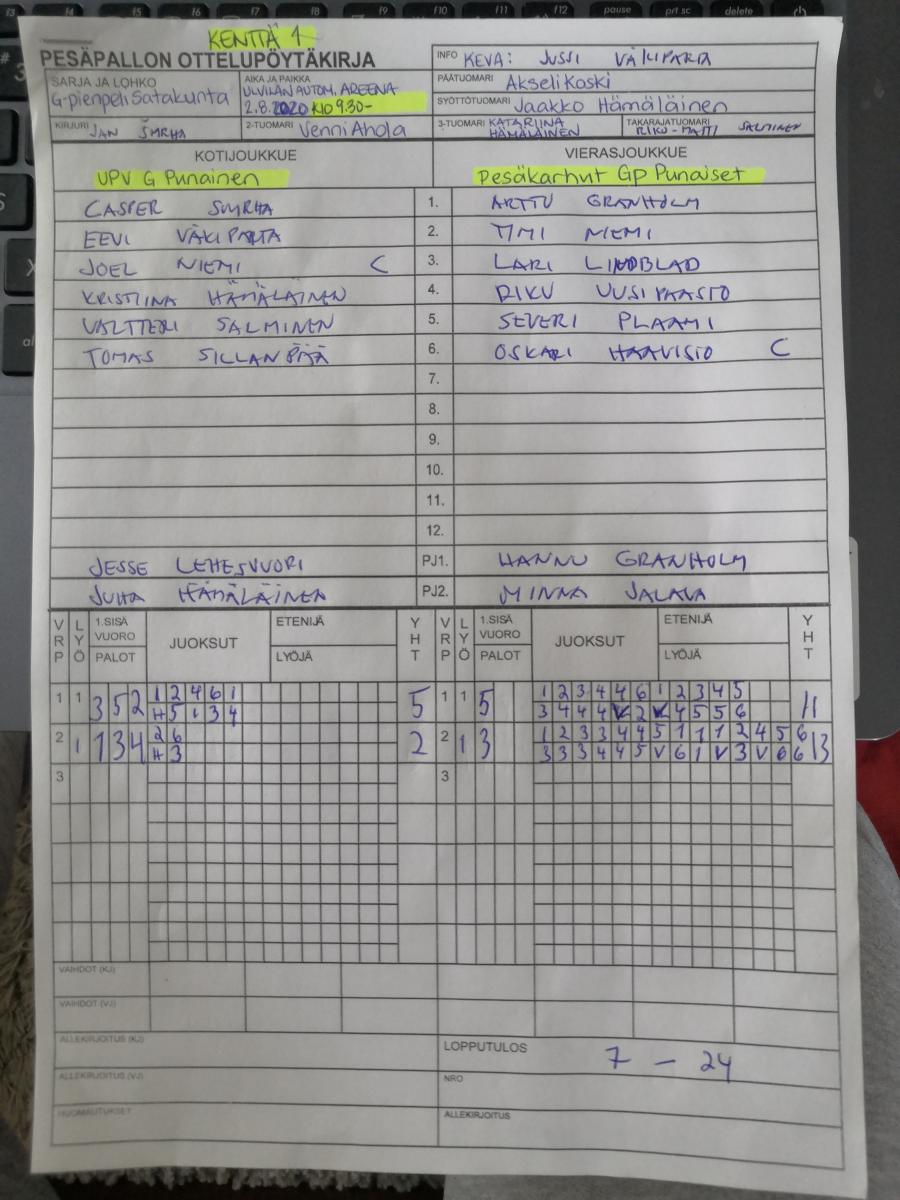 f3 f4 f5 f6 f7 f8 f9 f10 f11 f12 pause prt sc delete
KENTTÄ 1
PESÄPALLON OTTELUPÖYTÄKIRJA
INFO KEVA: JUSSI VÄKIPARTA
SARJA JA LOHKO
G-pienpeli Satakunta
AIKA JA PAIKKA
ULVILAN AUTOM. AREENA
2.8.2020 Klo 9.30-
PÄÄTUOMARI Akseli Koski
SYÖTTÖTUOMARI Jaakko Hämäläinen
KIRJURI JAN
2-TUOMARI Venni Ahola
3-TUOMARI KATARIINA HÄMÄLÄINEN
TAKARAJATUOMARI RIKU-MATTI SALMINEN
KOTIJOUKKUE
VIERASJOUKKUE
UPV G Punainen
Pesäkarhut Gp Punaiset
CASPER 1. ARTTU GRANHOLM
EEVI VÄKIPARTA 2. TIMI NIEMI
JOEL NIEMI C 3. LARI LINDBLAD
KRISTIINA HÄMÄLÄINEN 4. RIKU UUSIPAASTO
VALTTERI SALMINEN 5. SEVERI PLAAMI
TOMAS SILLANPÄÄ 6. OSKARI HAAVISTO C
7.
8.
9.
10.
11.
12.
JESSE LEHESVUORI PJ1. HANNU GRANHOLM
JUHA HÄMÄLÄINEN PJ2. MINNA JALAVA
VRP LYÖ 1.SISÄ VUORO PALOT JUOKSUT ETENIJÄ LYÖJÄ YHT VRP LYÖ 1.SISÄ VUORO PALOT JUOKSUT ETENIJÄ LYÖJÄ YHT
1 1 3 5 2 1 2 4 6 1 5 1 1 5 1 2 3 4 4 6 1 2 3 4 5 11
H 5 1 3 4 3 4 4 4 V 2 V 4 5 5 6
2 1 1 3 4 2 6 2 2 1 3 1 2 3 3 4 4 5 1 1 1 2 4 5 6 13
H 3 3 3 3 4 4 5 V 6 1 V 3 V 6 6
3 3
VAIHDOT (KJ)
VAIHDOT (VJ)
ALLEKIRJOITUS (KJ)
LOPPUTULOS 7 - 24
ALLEKIRJOITUS (VJ)
NRO
HUOMAUTUKSET
ALLEKIRJOITUS